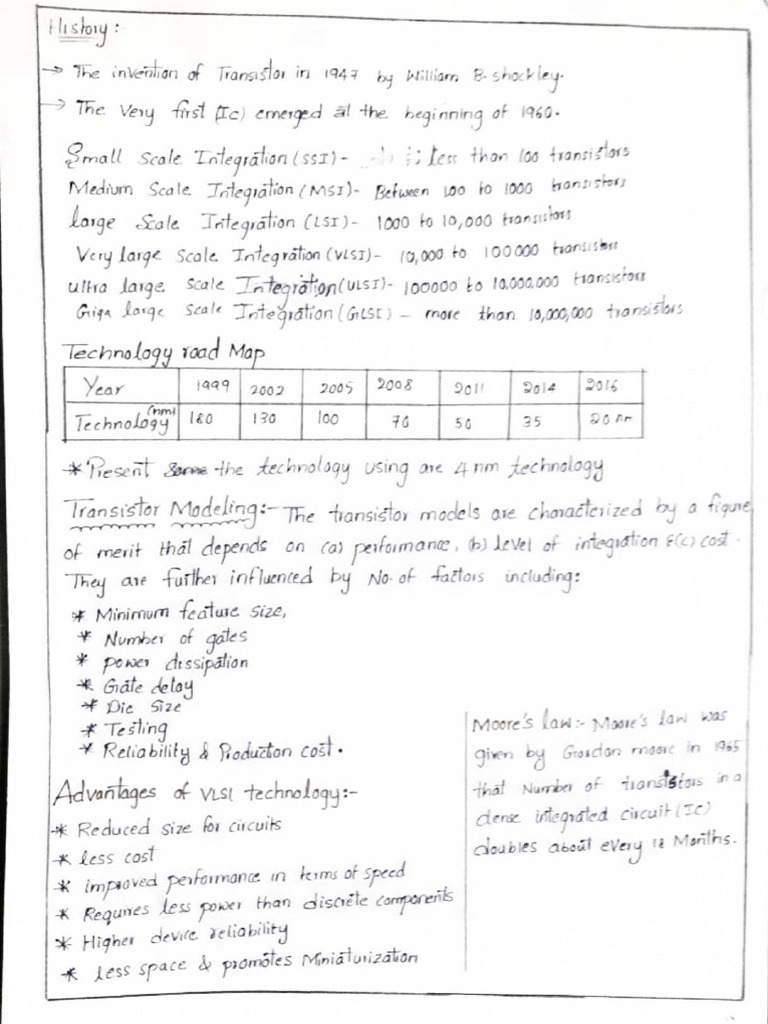 History:-
→ The invention of Transistor in 1947 by William B. shockley.
→ The Very first (IC) emerged at the beginning of 1960.
Small Scale Integration (SSI)- less than 100 transistors
Medium Scale Integration (MSI)- Between 100 to 1000 transistors
large Scale Integration (LSI)- 1000 to 10,000 transistors
Very large Scale Integration (VLSI)- 10,000 to 100000 transistors
ultra large Scale Integration (ULSI)- 100000 to 10,000,000 transistors
Giga large Scale Integration (GLSI) - more than 10,000,000 transistors
Technology road Map
Year 1999 2002 2005 2008 2011 2014 2016
Technology (nm) 180 130 100 70 50 35 20 nm
* Present the technology using are 4 nm technology
Transistor Modeling:- The transistor models are characterized by a figure
of merit that depends on (a) performance, (b) level of integration &(c) cost.
They are further influenced by No. of factors including:
* Minimum feature size,
* Number of gates
* power dissipation
* Gate delay
* Die size
* Testing
* Reliability & Production cost.
Advantages of VLSI technology:-
* Reduced size for circuits
* less cost
* improved performance in terms of speed
* Requires less power than discrete components
* Higher device reliability
* less space & promotes Miniaturization
Moore's law:- Moore's law was
given by Gordon moore in 1965
that Number of transistors in a
dense integrated circuit (IC)
doubles about every 18 Months.